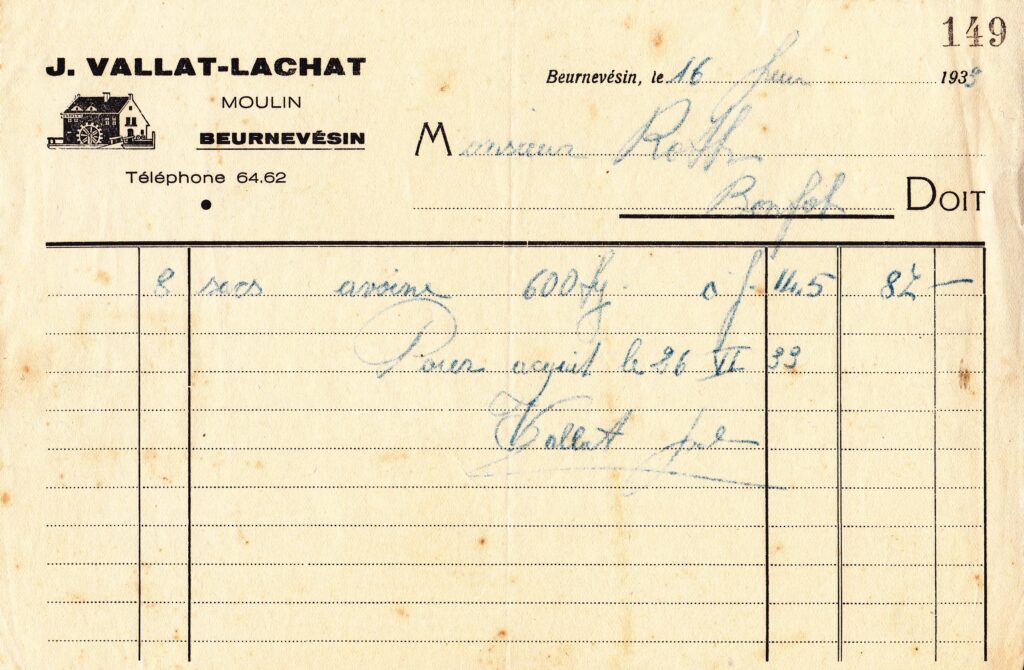 149
J. VALLAT-LACHAT
MOULIN
BEURNEVÉSIN
Téléphone 64.62
Beurnevésin, le 16 1933
Monsieur Roth
Bonfol DOIT
8 sacs avoine 600 kg. à f. 14.5 87 —
Pour acquit le 26 VI 33
Vallat